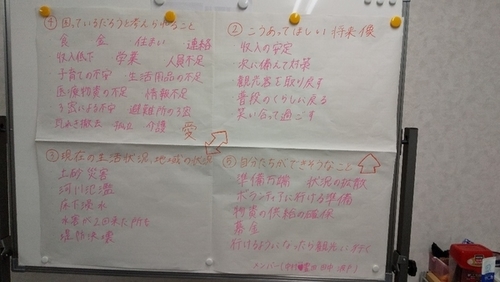 ④ 困っているだろうと考えられること
食 金 住まい 連絡
収入低下 学業 人員不足
子育ての不安 生活用品の不足
医療物資の不足 情報不足
避難所の
孤立 介護 愛
② こうあってほしい将来像
収入の安定
次に備えて対策
観光客を取り戻す
普段のくらしに戻る
笑い合って過ごす
③ 現在の生活状況、地域の状況
土砂災害
河川氾濫
床下浸水
水害が2回来た所も
堤防決壊
⑤ 自分たちができそうなこと
準備万端 状況の拡散
ボランティアに行ける準備
物資の供給の確保
募金
行けるようになったら観光に行く
メンバー 中村 田中